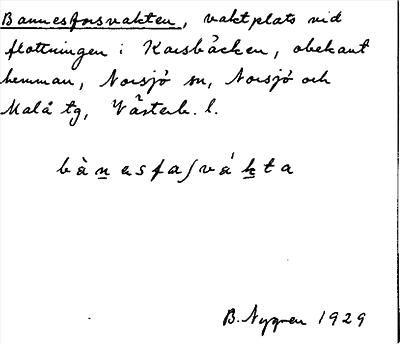 Bannesforsvakten, vaktplats vid
flottningen i Korsbäcken, obekant
hemman, Norsjö sn, Norsjö och
Malå tg, Västerb. l.
bànesfaʃvákta
B. Nygren 1929